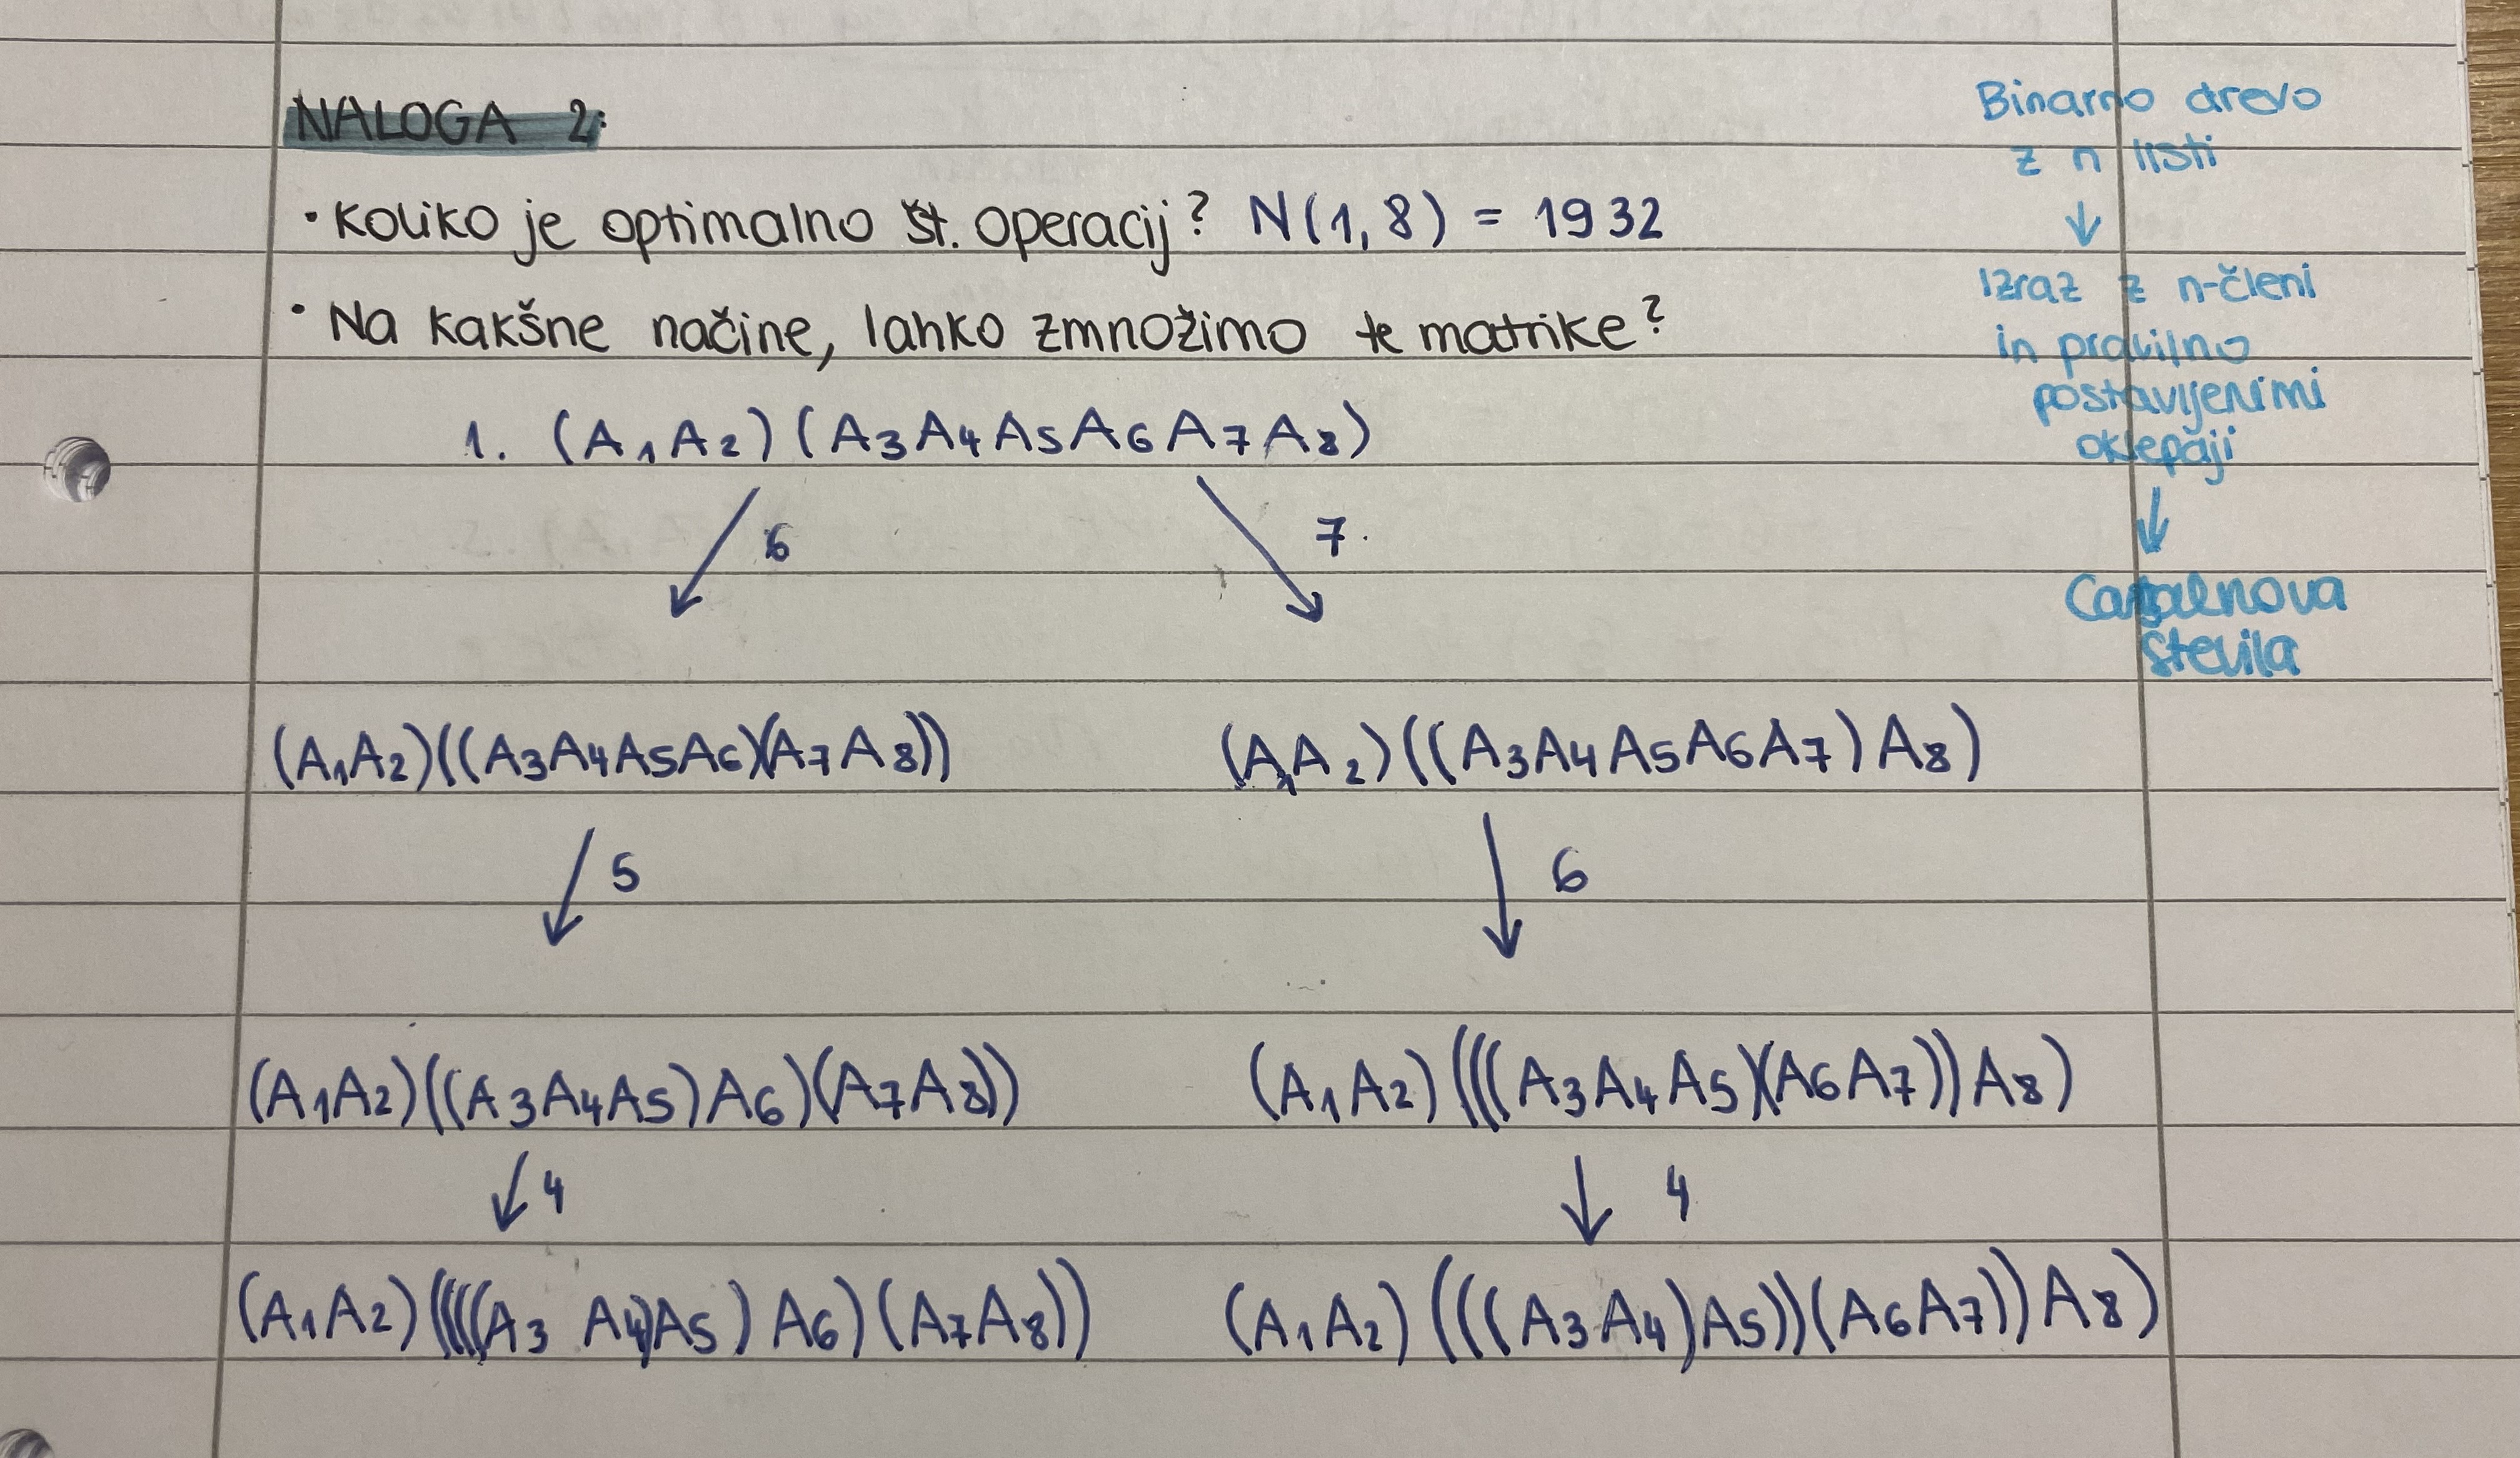 NALOGA 2:
• Koliko je optimalno št. operacij? N(1,8) = 1932
• Na kakšne načine, lahko zmnožimo te matrike?
1. (A1A2)(A3A4A5A6A7A8)
6 7.
(A1A2)((A3A4A5A6)(A7A8)) (A1A2)((A3A4A5A6A7)A8)
5 6
(A1A2)((A3A4A5)A6)(A7A8)) (A1A2)(((A3A4A5)(A6A7))A8)
4 4
(A1A2)((((A3 A4)A5)A6)(A7A8)) (A1A2)(((A3A4)A5))(A6A7))A8)
Binarno drevo
z n listi
↓
Izraz z n-členi
in pravilno
postavljenimi
oklepaji
↓
Catalanova
števila